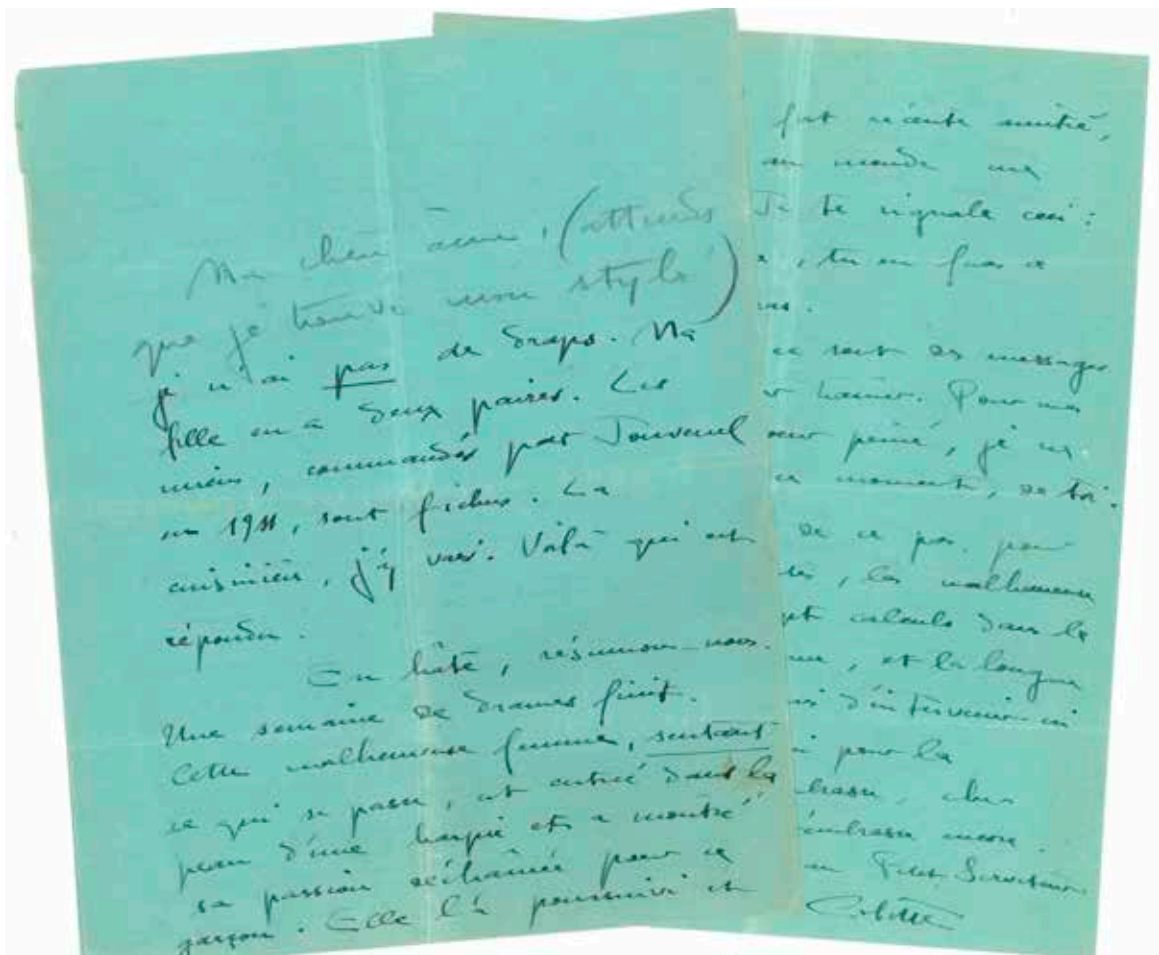 Ma chère âme, (attends
que je trouve mon stylo)
je n'ai pas de draps. Ma
fille en a deux paires. Les
miens, commandés par Jouvenel
en 1911, sont fichus. La
cuisinière, j'y vais. Voilà qui est
répondu.
En hâte, résumons-nous.
Une semaine de drames finit.
Cette malheureuse femme, sentant
ce qui se passe, est entrée dans la
peau d'une harpie et a montré
sa passion déchaînée pour ce
garçon. Elle l'a poursuivi et
fort récente amitié,
au monde
Je te signale ceci :
, tu en feras ce
ce sont des messages
Pour mon
peiné, je
ce moment, de toi.
de ce pas, pour
, les malheureux
calculs dans le
, et la longue
d'intervenir
pour la
, cher
embrasse encore.
Petit Serviteur
Colette